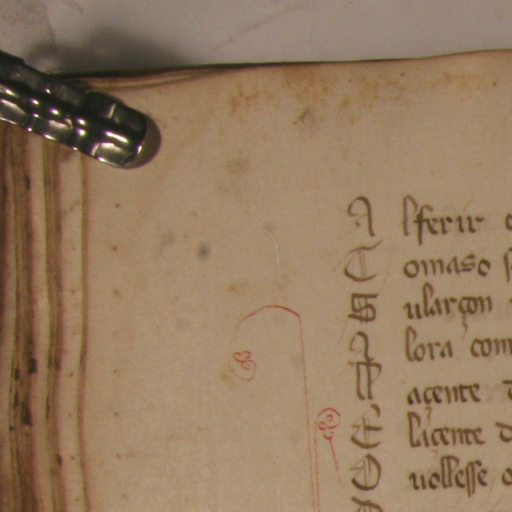 A lferir
T omaso
G ularçon
A lora com
P açente d
E liçente d
O uollesse